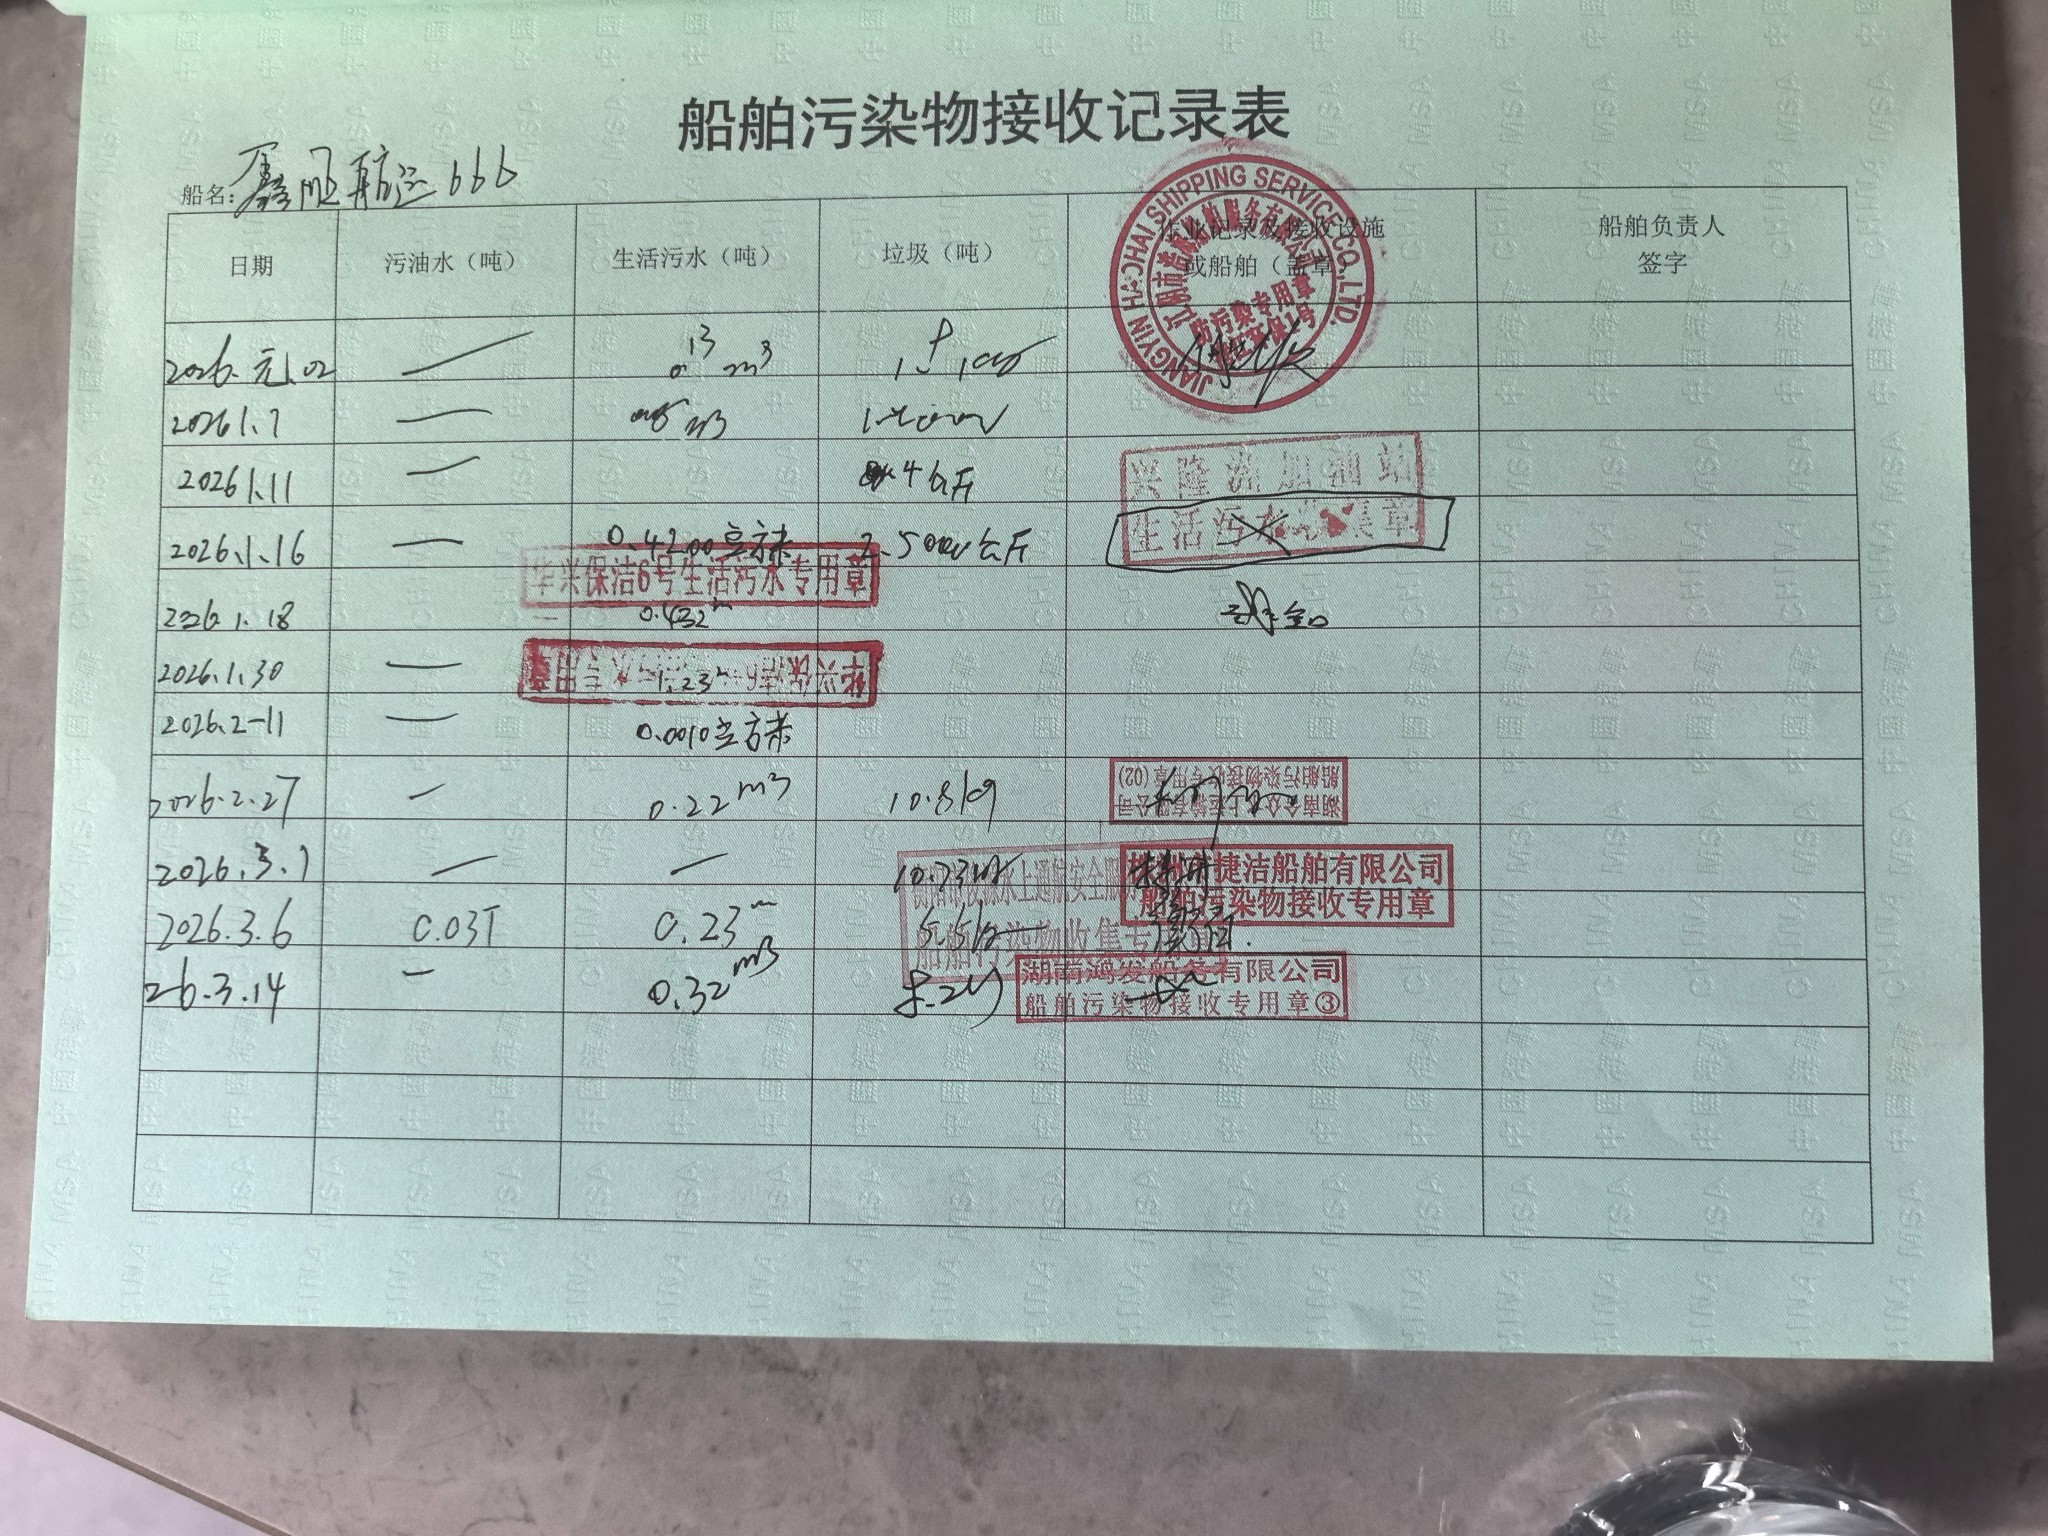 船舶污染物接收记录表
船名: 鑫 航运666
日期 污油水（吨） 生活污水（吨） 垃圾（吨） 作业记录及接收设施或船舶（盖章） 船舶负责人签字
JIANGYIN HAOHAI SHIPPING SERVICE CO.,LTD.
防污染专用章
2026.元.02 — m³
2026 1.7 — m3
2026 1.11 — 4公斤
兴隆洲加油站
生活污水 集章
2026.1.16 — 0.4200立方米 2.5000公斤
华兴保洁6号生活污水专用章
2026.1.18 0.432
2026.1.30 — 1.23
华兴保洁6号生活污水专用章
2026.2-11 — 0.0010立方米
2026.2.27 — 0.22m3 10.8kg
湖南众 上运输有限公司
船舶污染物接收专用章(02)
2026.3.1 — — 10.23kg
捷洁船舶有限公司
船舶污染物接收专用章
水上通航安全服
船舶污染物收集专
2026.3.6 0.03T 0.23 5.5kg
26.3.14 — 0.32m3 8.2
湖南鸿发船务有限公司
船舶污染物接收专用章③
中国海事 CHINA MSA